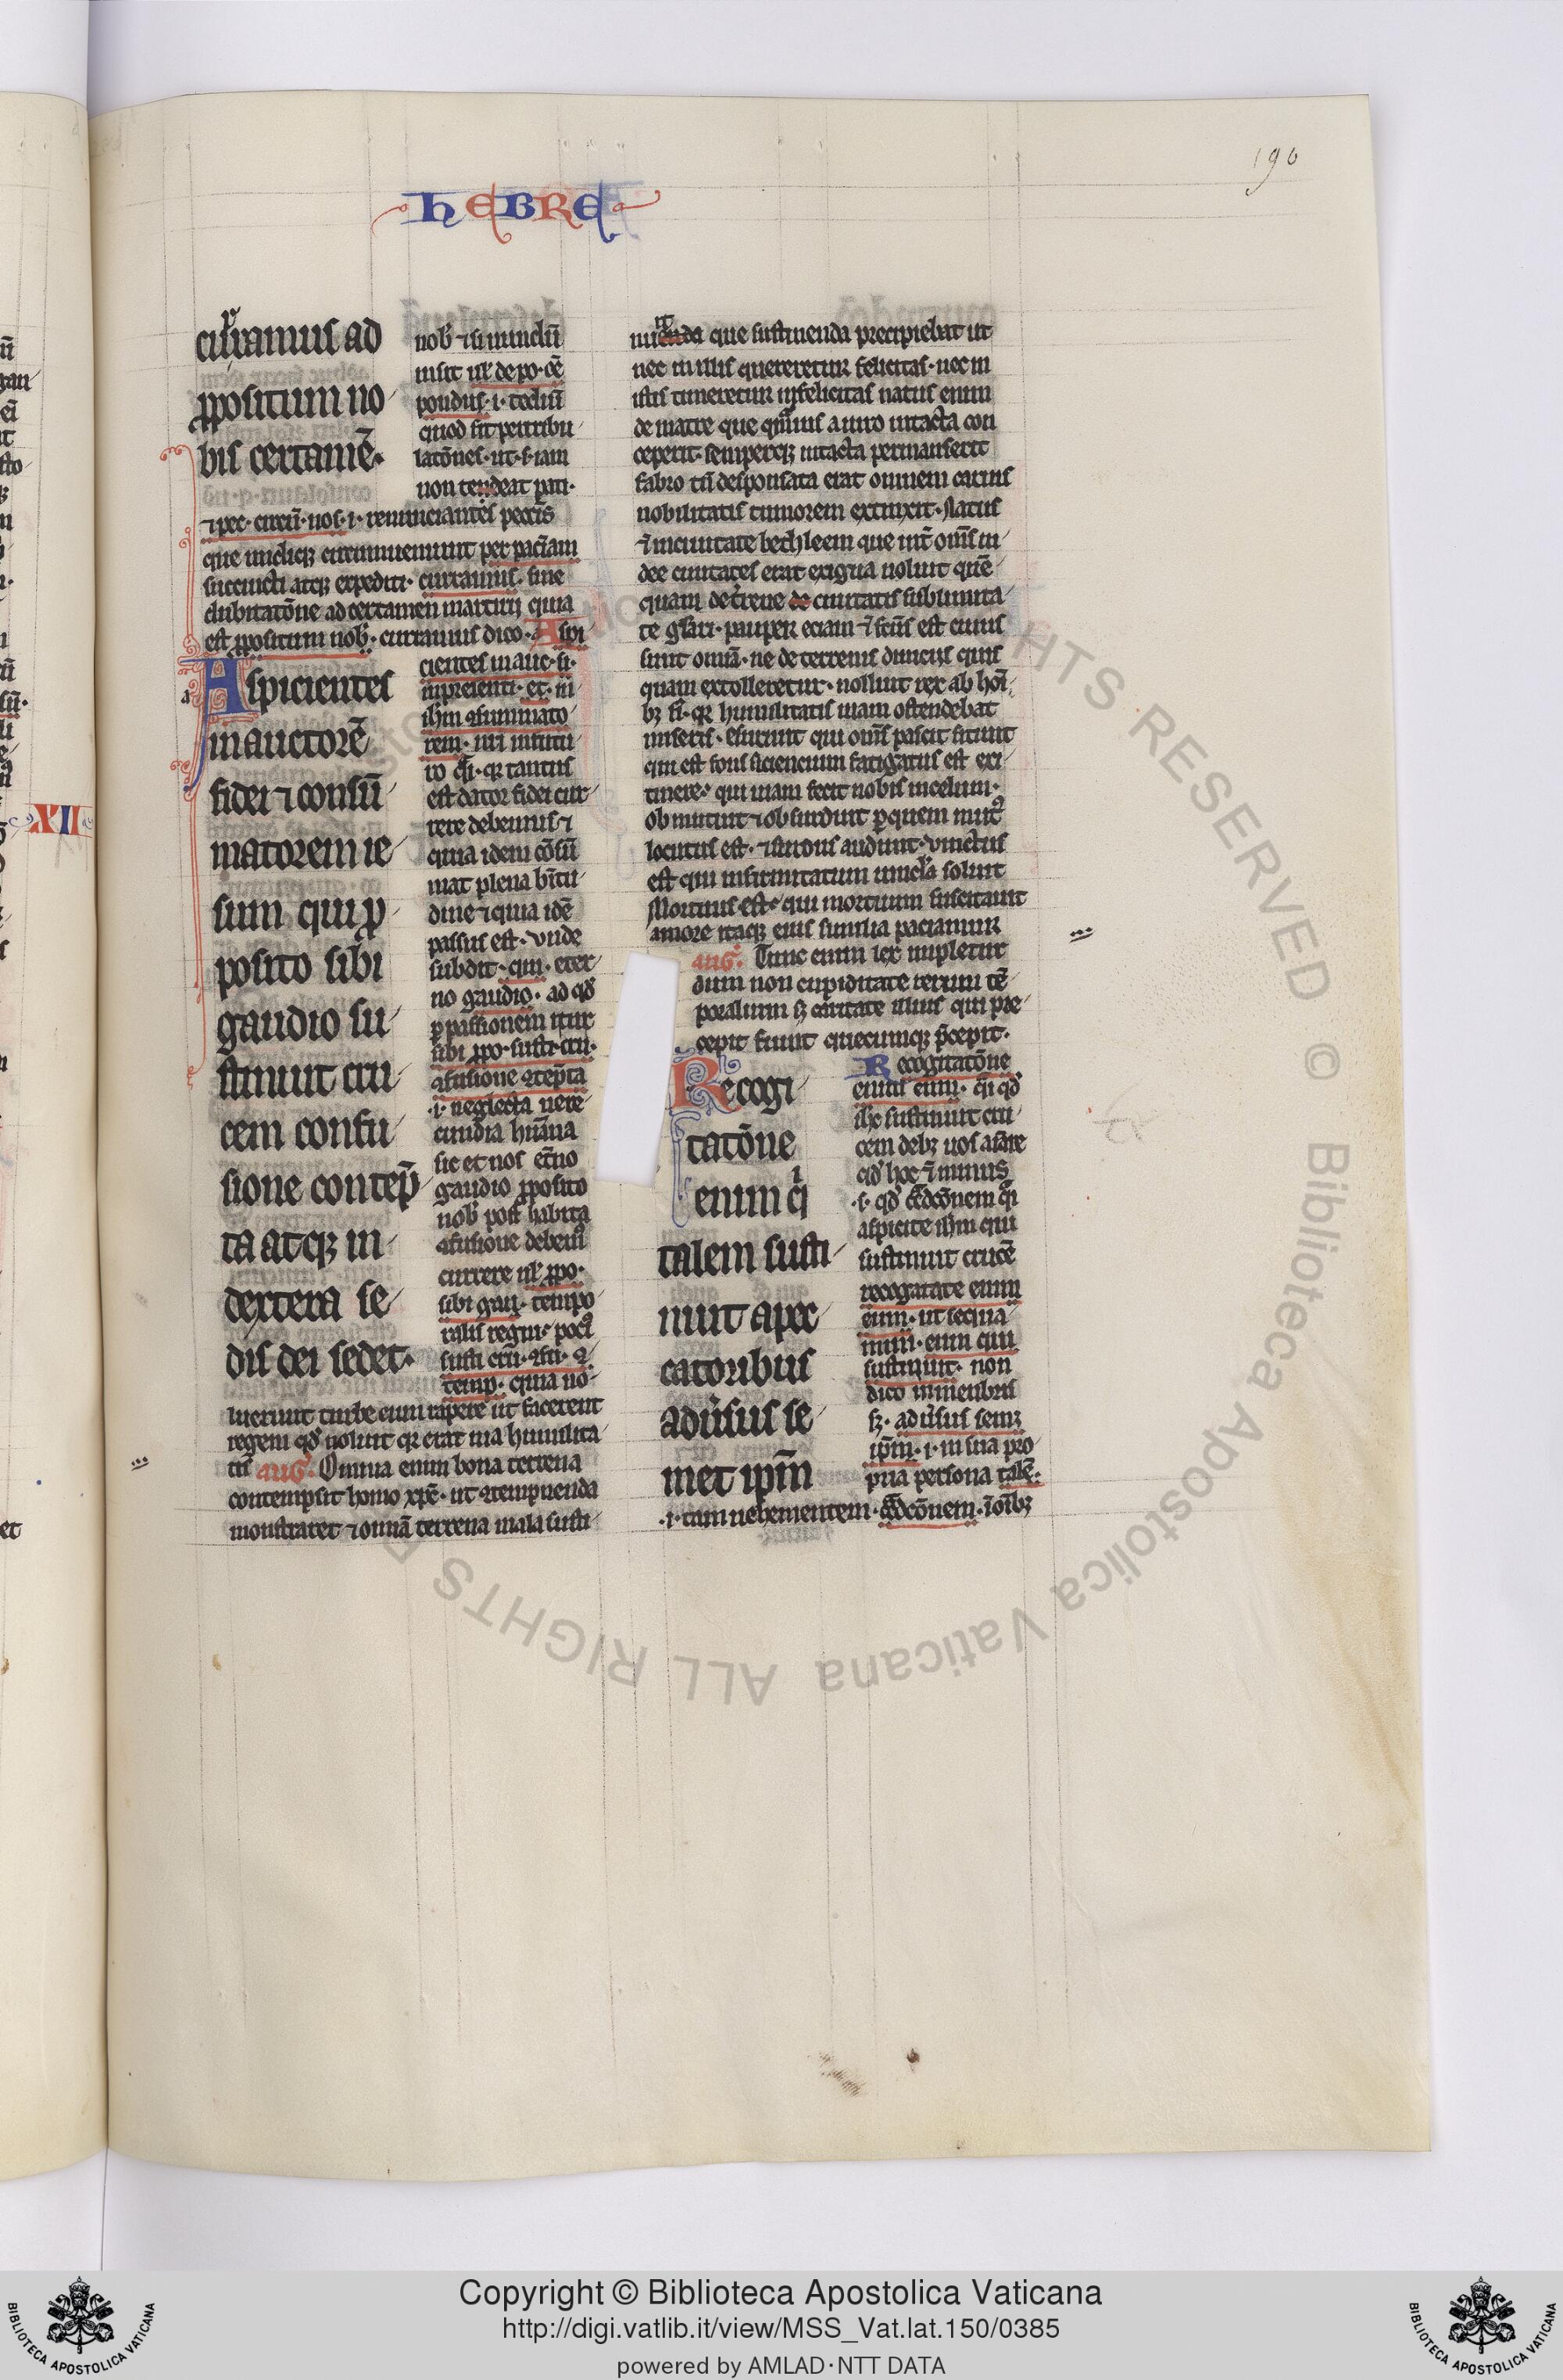 190
HEBRE
curramus ad
ꝓpositum no
bis certamē.
nob᷒ ⁊ si mundū
uisit ul᷒ depo. oē
pondus. i. tediū
quod fit per tribu
latōnes. ut. s. iam
non tendeat pati.
⁊ pec. circū. nos. i. renunciantes pecc̄is
que undiqꝫ circumueniunt per paciam
succincti atqꝫ expediti. curramus. sine
dubitatōne ad certamen martirij quia
est ꝓpositum nob᷒. curramus dico. Aspi
Aspicientes
in auctorē
fidei ⁊ consū
matorem ie
sum qui ꝓ
posito sibi
gaudio su
stinuit cru
cem confu
sione contēp
ta atqꝫ in
dextera se
dis dei sedet.
cientes in auc. fi.
in presenti. et. in
ihm ꝯsummato
rem.
est dator fidei cur
rere debemus ⁊
quia idem cōsū
mat plena b̄itu
dine ⁊ quia idē
passus est. vnde
subdit. qui. eter
no gaudio. ad qd̓
ꝑ passionem itur
sibi ꝓpo. susti. cru.
ꝯfusione ꝯtēpta
.i. neglecta uere
cundia hūana
sic et nos et̄no
gaudio ꝓposito
nob᷒ post habita
ꝯfusione debem᷒
currere ul᷒ ꝓpo.
sibi gau. tempo
ralis regni. poci᷒
temp. quia uo
luerunt turbe eum rapere ut facerent
regem qd̓ noluit qr erat uia humilita
tis aug᷒. Omnia enim bona terrena
contempsit homo xpc̄. ut ꝯtempnenda
monstraret ⁊ omīa terrena mala susti
nuit que sustinenda precipiebat ut
nec in illis quereretur felicitas. nec in
istis timeretur infelicitas natus enim
de matre que quāuis a uiro intacta con
ceperit. semperqꝫ intacta permanserit
fabro tn̄ desponsata erat omnem carnis
nobilitatis tumorem extinxit. Natus
⁊ in ciuitate bethleem que int̄ om̄s iu
dee ciuitates erat exigua noluit quē
quam de t̓rene ciuitatis sublimita
te gl̓ari. pauper eciam
sunt omīa. ne de terrenis diuiciis quis
quam extolleretur. noluit rex ab hoī
bꝫ fi. qr humilitatis uiam ostendebat
miseris. esuriuit qui om̄s pascit sitiuit
qui est fons sicientium fatigatus est ex i
tinere. qui uiam fecit nobis in celum.
obmutuit ⁊ obsurduit ꝑ quem mut᷒
locutus est. ⁊ surdus audiuit. vinctus
est qui infirmitatum uincl̓a soluit
Mortuus est. qui mortuum suscitauit
amore itaqꝫ eius similia paciamur
aug᷒. Tunc enim lex impletur
dum non cupiditate rerum tē
poralium sꝫ caritate illius qui pre
cepit fiunt quecumqꝫ p̄cepit.
Recogi
tatōne
enim qi
talem susti
nuit a pec
catoribus
adūsus se
met ipm̄
Recogitatōne
enim eum. qi qd̓
ihc sustinuit cru
cem debꝫ uos aīare
qd̓ hoc
.i. qd̓
aspicite ihm qui
sustinuit crucē
recogitate enim
eum. ut sequa
mini. eum qui
sustinuit. non
dico in menbris
sꝫ. adūsus semꝫ
ipm̄. i. in sua pro
pria persona talē.
.i. tam uehementem.
XII
Copyright © Biblioteca Apostolica Vaticana
http://digi.vatlib.it/view/MSS_Vat.lat.150/0385
powered by AMLAD·NTT DATA
BIBLIOTECA APOSTOLICA VATICANA
BIBLIOTECA APOSTOLICA VATICANA